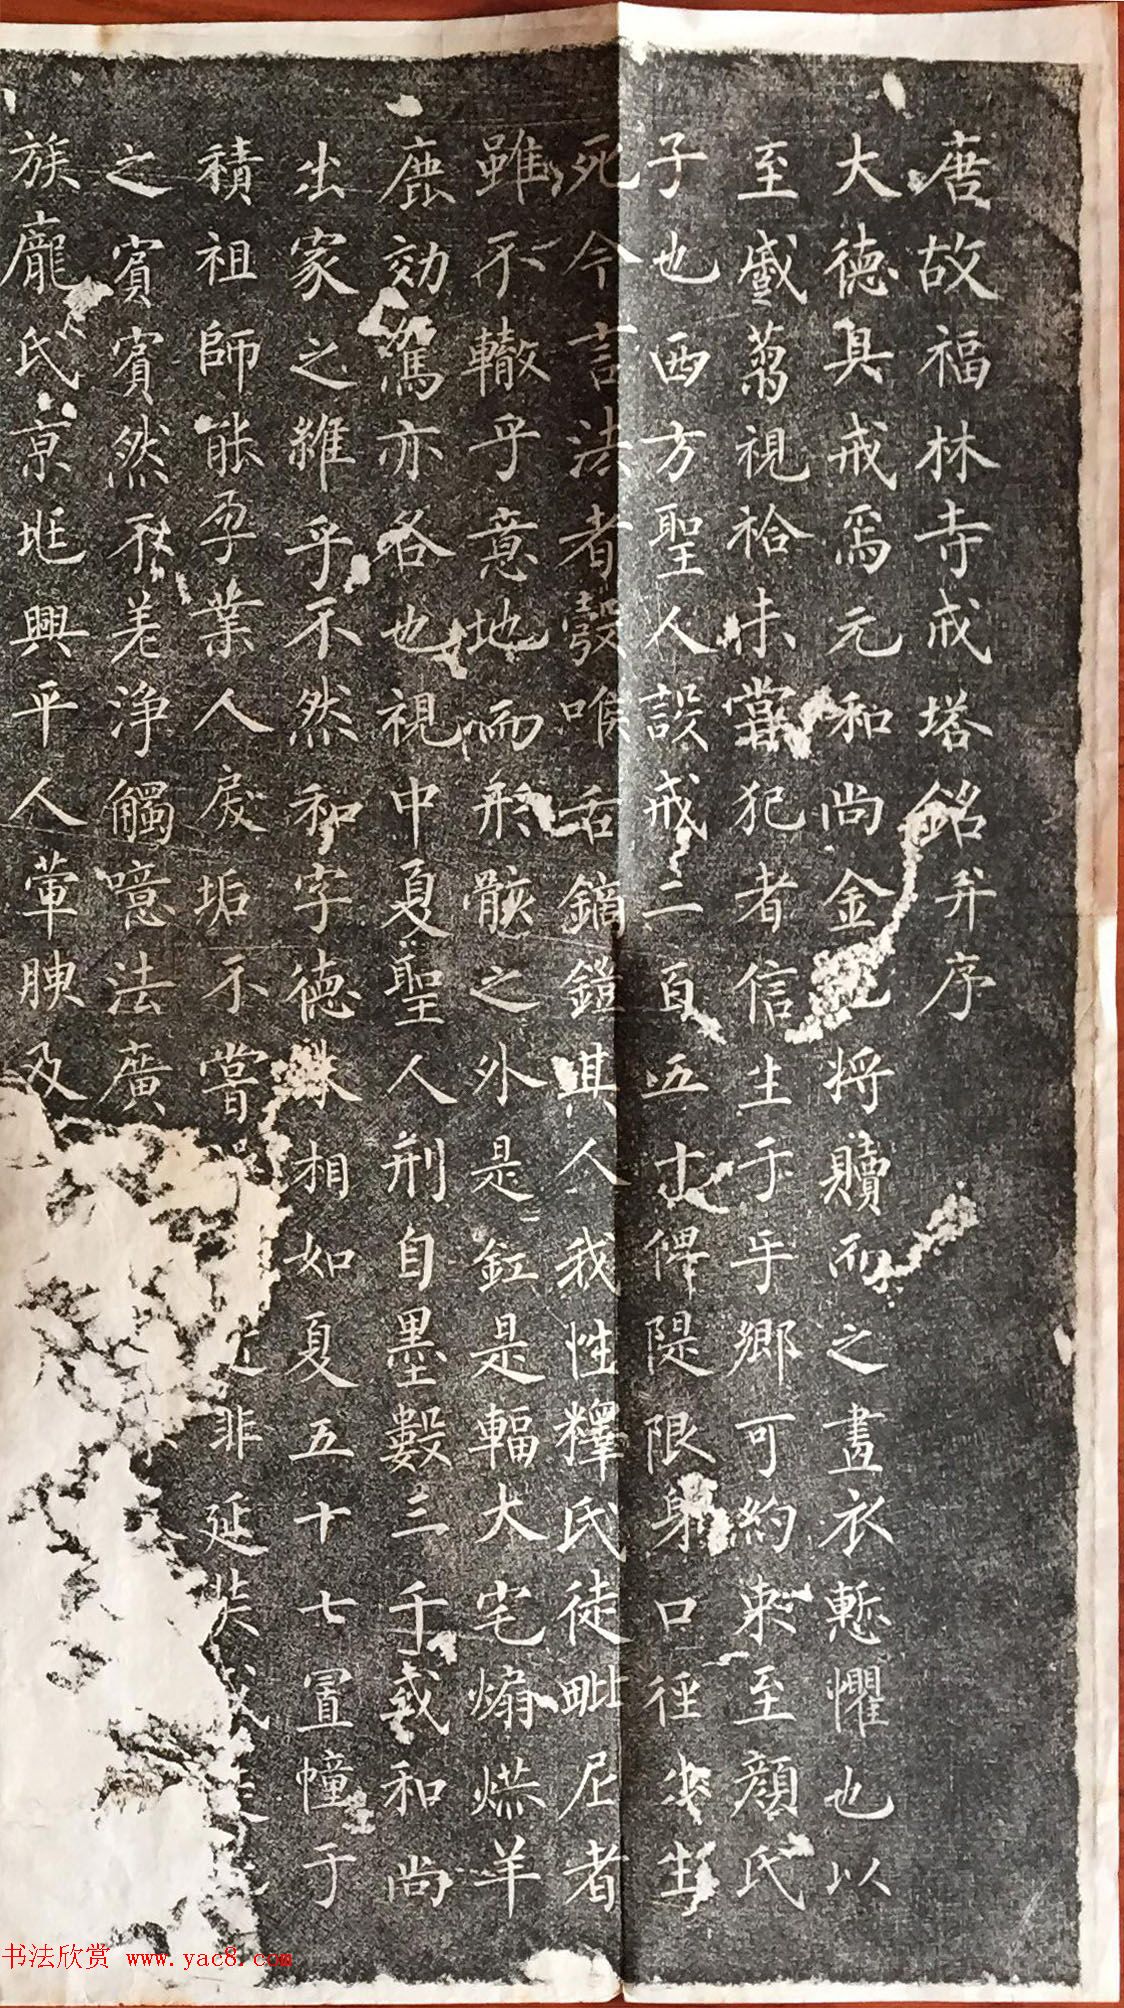 唐故福林寺戒塔銘并序
大德具戒焉元和尚金將贖而之畫衣慙懼也以
至戚蒭視袷未嘗犯者信生于乎鄉可約束至顏氏
子也西方聖人設戒二百五十俾隄限身口徑出生
死今言法者鷇唯舌鏑鎧其人我性釋氏徒毗尼者
雖不轍乎意地而形骸之外是釭是輻大宅煽燕羊
鹿効駕亦各也視中夏聖人刑自墨數三千戒和尚
出家之雖乎不然和字德水相如夏五十七置幢于
積祖師能孕業人戾垢不嘗非延
之賓賓然不羌浄觸噫法廣
族龐氏京地興平人葷腴及
书法欣赏 www.yac8.com